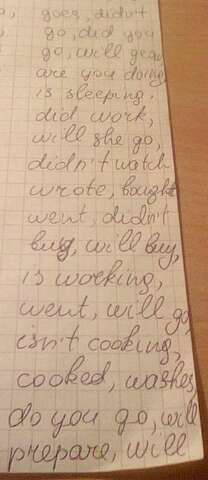 goes, didn't
go, did you
go, will
are you doing
is sleeping,
did work,
will she go,
didn't watch
wrote, bought
went, didn't
buy, will buy,
is working,
went, will go,
isn't cooking,
cooked, washes
do you go, will
prepare, will